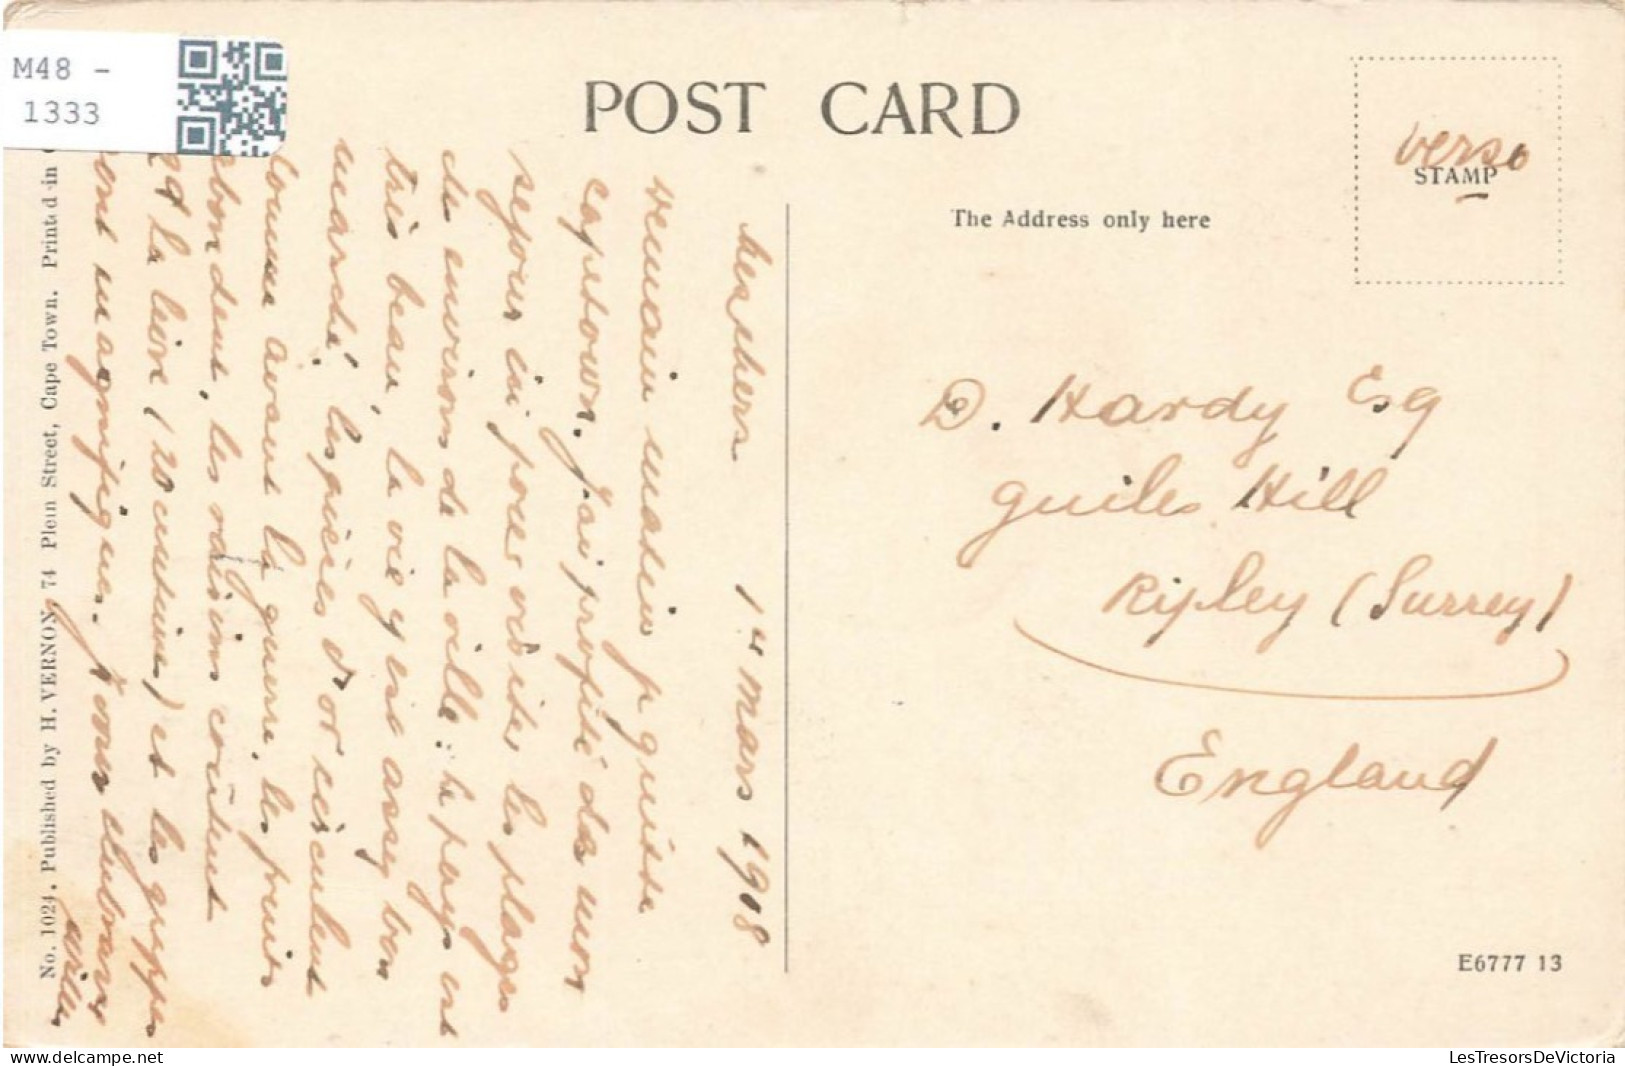 M48 -
1333
POST CARD
verso
STAMP
The Address only here
D. Hardy Esq
Guiles Hill
Ripley (Surrey)
England
E6777 13
1er Mars 1908
demain matin je quitte
Capetown. J'ai profité de mon
sejour ici pour visiter les plages
des environs de la ville : le pays est
très beau, la vie y est assez bon
marché, les pièces d'or circulent
comme avant la guerre, les fruits
abondent, les raisins coûtent
2d la livre (20 centimes) et les grappes
sont magnifiques. Je vous embrasse
No. 1024. Published by H. VERNON, 74 Plein Street, Cape Town. Printed in
LesTresorsDeVictoria
www.delcampe.net